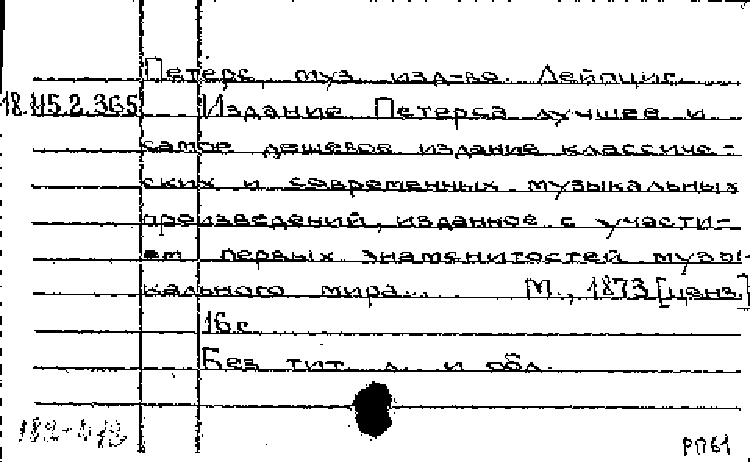 Петерс, муз. изд-во. Лейпциг.
18.115.2.365 Издание Петерса лучшее и
самое дешевое издание классиче-
ских и современных музыкальных
произведений, изданное с участи-
ем первых знаменитостей музы-
кального мира... М., 1873 [ценз.]
16 с.
Без тит. л. и обл.
РПБ1